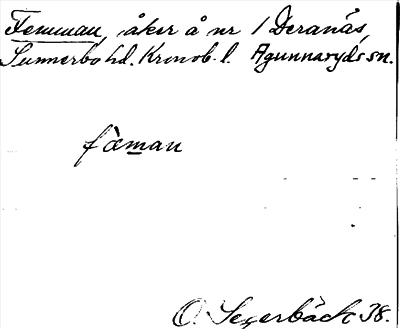 Femman, åker å nr 1 Deranäs,
Sunnerbo hd. Kronob. l. Agunnaryds sn.
fàman
O. Segerbäck 38.